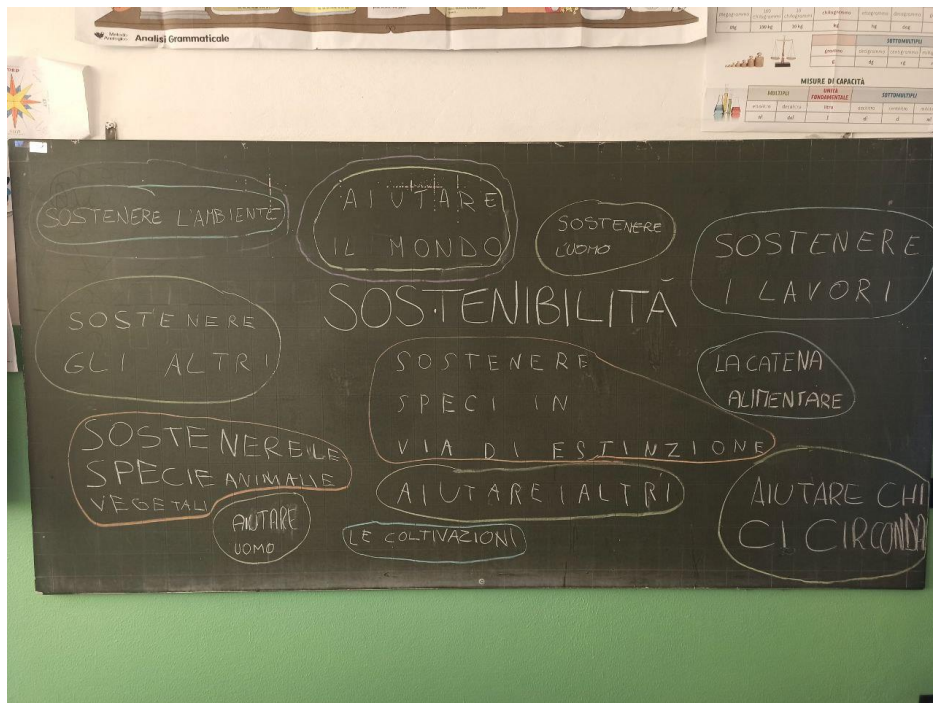 Metodo Analogico Analisi Grammaticale
MISURE DI CAPACITÀ
MULTIPLI UNITÀ FONDAMENTALE SOTTOMULTIPLI
SOTTOMULTIPLI
SOSTENERE L'AMBIENTE
AIUTARE
IL MONDO
SOSTENERE
L'UOMO
SOSTENERE
I LAVORI
SOSTENIBILITÀ
SOSTENERE
GLI ALTRI
SOSTENERE
SPECI IN
VIA DI ESTINZIONE
LA CATENA
ALIMENTARE
SOSTENERE LE
SPECIE ANIMALI E
VEGETALI
AIUTARE
UOMO
AIUTARE I ALTRI
LE COLTIVAZIONI
AIUTARE CHI
CI CIRCONDA